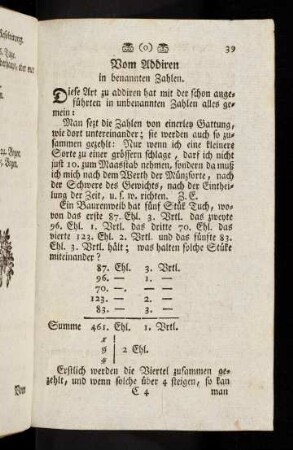 (0) 39
Vom Addiren
in benannten Zahlen.
Diese Art zu addiren hat mit der schon ange-
führten in unbenannten Zahlen alles ge-
mein:
Man sezt die Zahlen von einerley Gattung,
wie dort untereinander; sie werden auch so zu-
sammen gezehlt: Nur wenn ich eine kleinere
Sorte zu einer grössern schlage, darf ich nicht
just 10. zum Maasstab nehmen, sondern da muß
ich mich nach dem Werth der Münzsorte, nach
der Schwere des Gewichts, nach der Einthei-
lung der Zeit, u. s. w. richten. Z. E.
Ein Baurenweib hat fünf Stük Tuch, wo-
von das erste 87. Ehl. 3. Vrtl. das zweyte
96. Ehl. 1. Vrtl. das dritte 70. Ehl. das
vierte 123. Ehl. 2. Vrtl. und das fünfte 83.
Ehl. 3. Vrtl. hält; was halten solche Stüke
miteinander?
87. Ehl. 3. Vrtl.
96. — 1. —
70. — . —
123. — 2. —
83. — 3. —
Summe 461. Ehl. 1. Vrtl.
2 Ehl.
Erstlich werden die Viertel zusammen ge-
zehlt, und wenn solche über 4 steigen, so kan
C 4 man